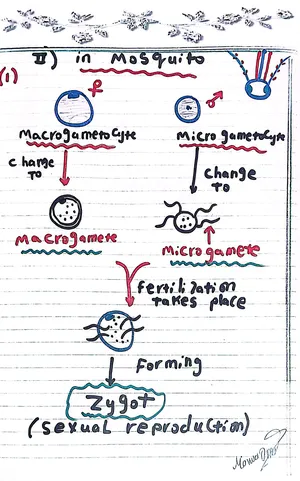 II) in Mosquito
(1)
♀ ♂
Macrogametocyte Microgametocyte
change
To
change
To
Macrogamete Microgamete
fertilization
takes place
Forming
Zygot
(sexual reproduction)